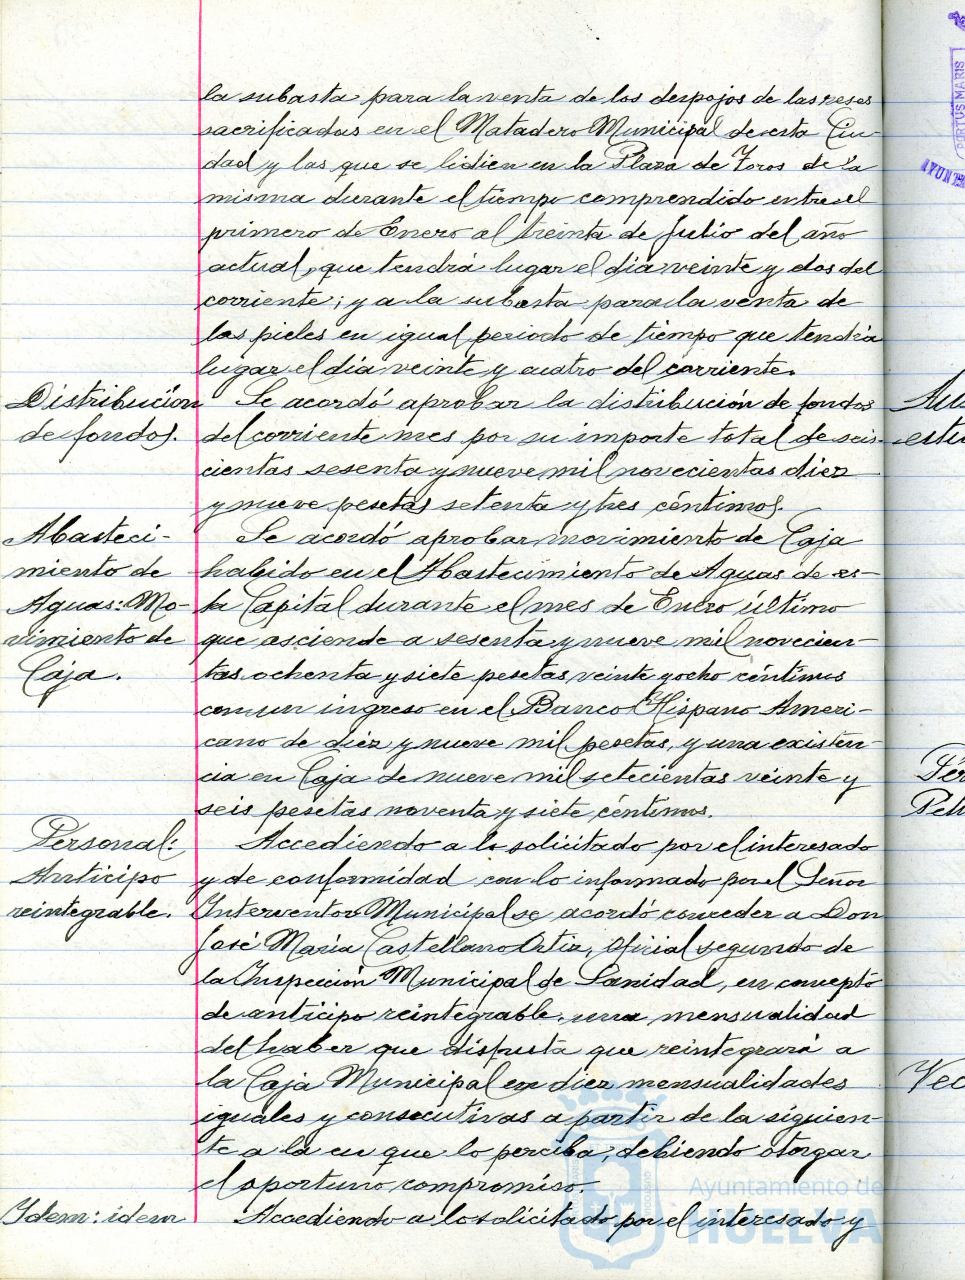 la subasta para la venta de los despojos de las reses
sacrificadas en el Matadero Municipal de esta Ciu-
dad y las que se lidien en la Plaza de Toros de la
misma durante el tiempo comprendido entre el
primero de Enero al treinta de Julio del año
actual, que tendrá lugar el dia veinte y dos del
corriente; y a la subasta para la venta de
las pieles en igual periodo de tiempo que tendrá
lugar el día veinte y cuatro del corriente.
Distribución
de fondos.
Se acordó aprobar la distribución de fondos
del corriente mes por su importe total de seis-
cientas sesenta y nueve mil novecientas diez
y nueve pesetas setenta y tres céntimos.
Abasteci-
miento de
Aguas: Mo-
vimiento de
Caja.
Se acordó aprobar movimiento de Caja
habido en el Abastecimiento de Aguas de es-
ta Capital durante el mes de Enero último
que asciende a sesenta y nueve mil novecien-
tas ochenta y siete pesetas veinte y ocho céntimos
con un ingreso en el Banco Hispano Ameri-
cano de diez y nueve mil pesetas, y una existen-
cia en Caja de nueve mil setecientas veinte y
seis pesetas noventa y siete céntimos.
Personal:
Anticipo
reintegrable.
Accediendo a lo solicitado por el interesado
y de conformidad con lo informado por el Señor
Interventor Municipal se acordó conceder a Don
José María Castellano Ortiz, Oficial segundo de
la Inspección Municipal de Sanidad, en concepto
de anticipo reintegrable, una mensualidad
del haber que disfruta que reintegrará a
la Caja Municipal en diez mensualidades
iguales y consecutivas a partir de la siguien-
te a la en que lo perciba, debiendo otorgar
el oportuno compromiso.
Idem: idem
Accediendo a lo solicitado por el interesado y
Ayuntamiento de
HUELVA
PORTUS MARIS